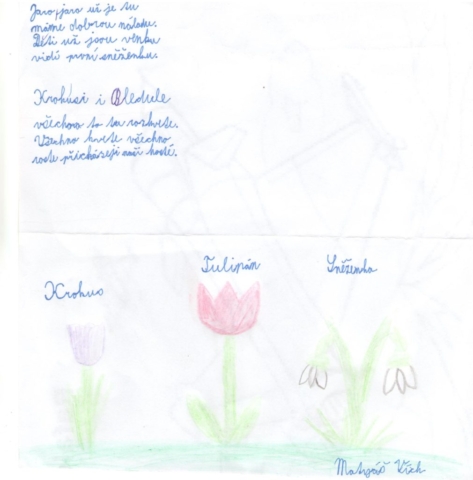 Jaro, jaro už je tu
máme dobrou náladu.
Děti už jsou venku
vidí první sněženku.
Krokusi i Bledule
všechono to tu rozkvete.
Všechno kvete všechno
roste přicházejí noví hosté.
Tulipán
Sněženka
Krokus
Matyáš